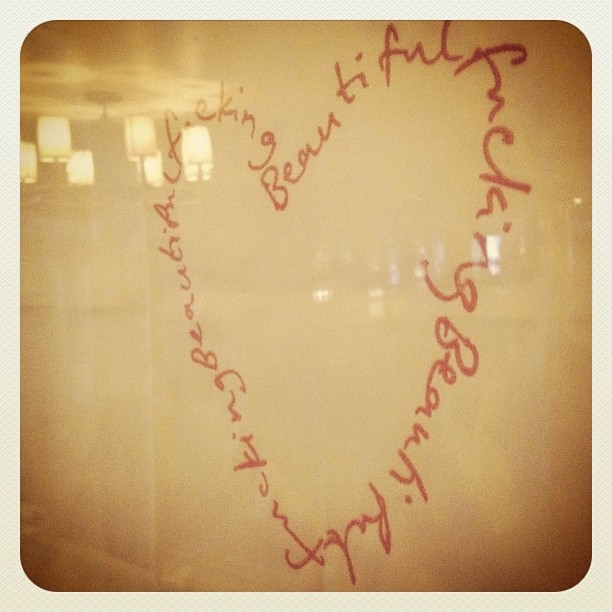 Beautiful fucking Beautiful fucking Beautiful fucking